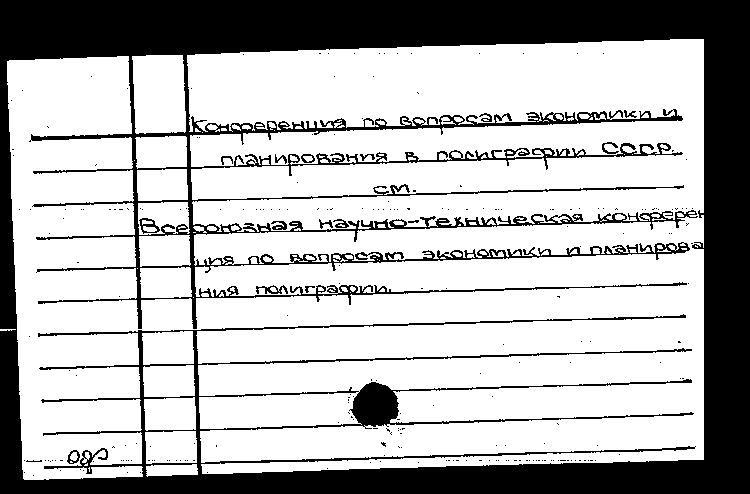 Конференция по вопросам экономики и
планирования в полиграфии СССР
см.
Всесоюзная научно-техническая конферен
ция по вопросам экономики и планирова
ния полиграфии.